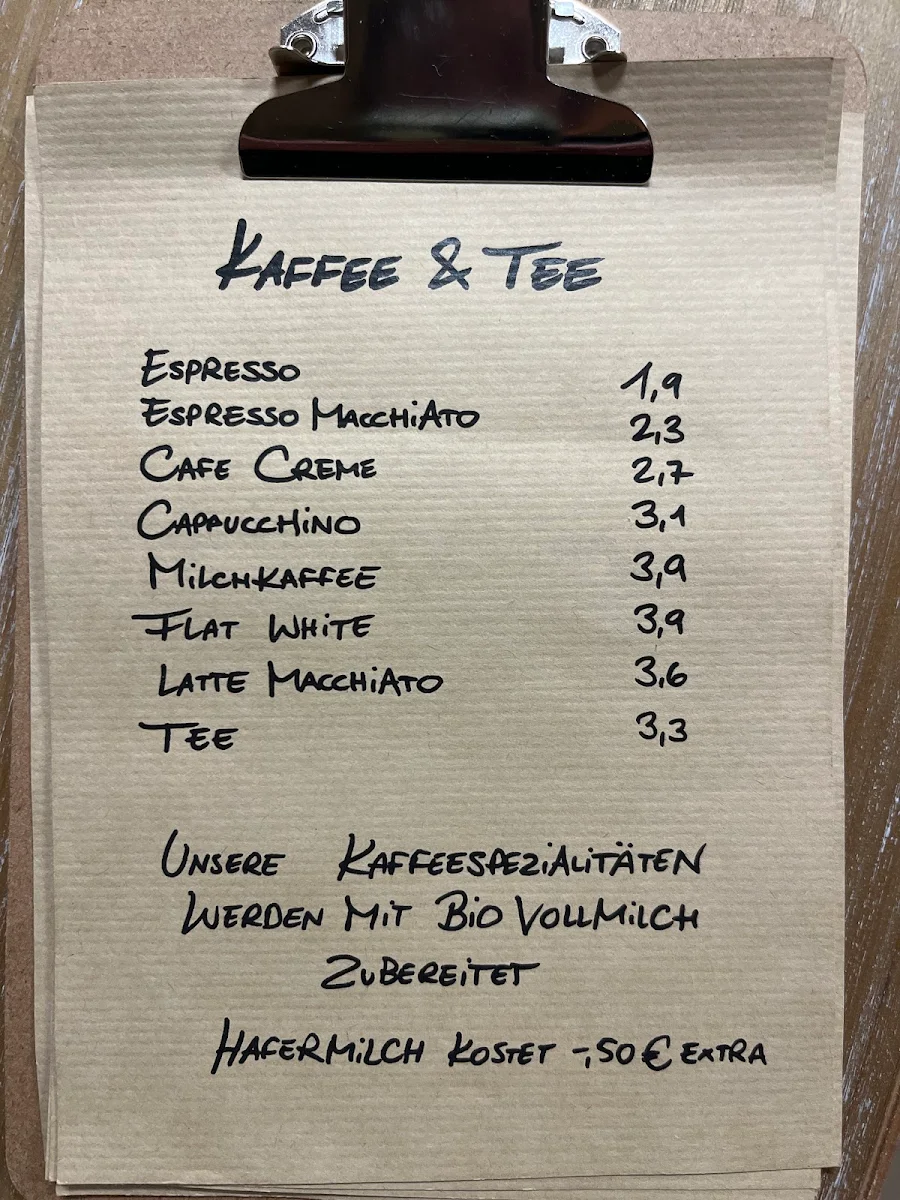 KAFFEE & TEE
ESPRESSO 1,9
ESPRESSO MACCHiATO 2,3
CAFE CREME 2,7
CAPPUCCHiNO 3,1
MiLCHKAFFEE 3,9
FLAT WHiTE 3,9
LATTE MACCHiATO 3,6
TEE 3,3
UNSERE KAFFEESPEZiALiTÄTEN
WERDEN MiT BiO VOLLMiLCH
ZUBEREiTET
HAFERMiLCH KOSTET -,50 € EXTRA